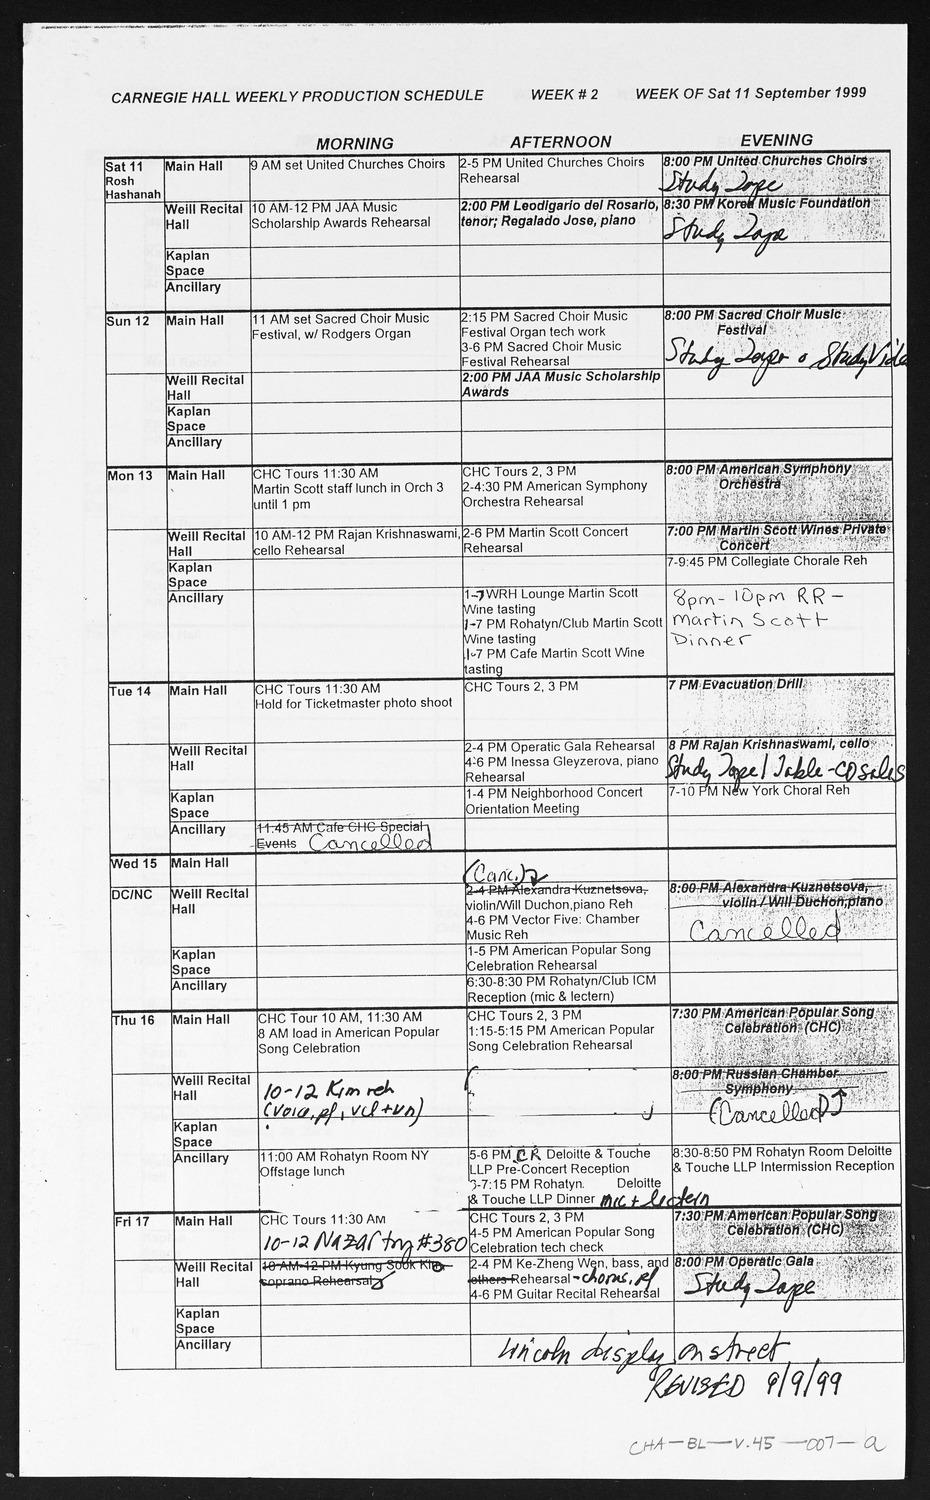 CARNEGIE HALL WEEKLY PRODUCTION SCHEDULE WEEK # 2 WEEK OF Sat 11 September 1999
MORNING AFTERNOON EVENING
Sat 11
Rosh
Hashanah
Main Hall
9 AM set United Churches Choirs
2-5 PM United Churches Choirs
Rehearsal
8:00 PM United Churches Choirs
Study Tape
Weill Recital
Hall
10 AM-12 PM JAA Music
Scholarship Awards Rehearsal
2:00 PM Leodigario del Rosario,
tenor; Regalado Jose, piano
8:30 PM Korea Music Foundation
Study Tape
Kaplan
Space
Ancillary
Sun 12
Main Hall
11 AM set Sacred Choir Music
Festival, w/ Rodgers Organ
2:15 PM Sacred Choir Music
Festival Organ tech work
3-6 PM Sacred Choir Music
Festival Rehearsal
8:00 PM Sacred Choir Music
Festival
Study Tape Study Video
Weill Recital
Hall
2:00 PM JAA Music Scholarship
Awards
Kaplan
Space
Ancillary
Mon 13
Main Hall
CHC Tours 11:30 AM
Martin Scott staff lunch in Orch 3
until 1 pm
CHC Tours 2, 3 PM
2-4:30 PM American Symphony
Orchestra Rehearsal
8:00 PM American Symphony
Orchestra
Weill Recital
Hall
10 AM-12 PM Rajan Krishnaswami,
cello Rehearsal
2-6 PM Martin Scott Concert
Rehearsal
7:00 PM Martin Scott Wines Private
Concert
Kaplan
Space
7-9:45 PM Collegiate Chorale Reh
Ancillary
1-7 WRH Lounge Martin Scott
Wine tasting
1-7 PM Rohatyn/Club Martin Scott
Wine tasting
1-7 PM Cafe Martin Scott Wine
tasting
8pm-10pm RR -
Martin Scott
Dinner
Tue 14
Main Hall
CHC Tours 11:30 AM
Hold for Ticketmaster photo shoot
CHC Tours 2, 3 PM
7 PM Evacuation Drill
Weill Recital
Hall
2-4 PM Operatic Gala Rehearsal
4-6 PM Inessa Gleyzerova, piano
Rehearsal
8 PM Rajan Krishnaswami, cello
Study Tape / Table - CD sales
Kaplan
Space
1-4 PM Neighborhood Concert
Orientation Meeting
7-10 PM New York Choral Reh
Ancillary
11:45 AM Cafe CHC Special
Events Cancelled
Wed 15
Main Hall
DC/NC
Weill Recital
Hall
(Canc.)
2-4 PM Alexandra Kuznetsova,
violin/Will Duchon,piano Reh
4-6 PM Vector Five: Chamber
Music Reh
8:00 PM Alexandra Kuznetsova,
violin / Will Duchon,piano
Cancelled
Kaplan
Space
1-5 PM American Popular Song
Celebration Rehearsal
Ancillary
6:30-8:30 PM Rohatyn/Club ICM
Reception (mic & lectern)
Thu 16
Main Hall
CHC Tour 10 AM, 11:30 AM
8 AM load in American Popular
Song Celebration
CHC Tours 2, 3 PM
1:15-5:15 PM American Popular
Song Celebration Rehearsal
7:30 PM American Popular Song
Celebration (CHC)
Weill Recital
Hall
10-12 Kim reh
(voice, pf, vcl + vn)
8:00 PM Russian Chamber
Symphony
(Cancelled)
Kaplan
Space
Ancillary
11:00 AM Rohatyn Room NY
Offstage lunch
5-6 PM CR Deloitte & Touche
LLP Pre-Concert Reception
-7:15 PM Rohatyn. Deloitte
& Touche LLP Dinner mic + lectern
8:30-8:50 PM Rohatyn Room Deloitte
& Touche LLP Intermission Reception
Fri 17
Main Hall
CHC Tours 11:30 AM
10-12 Nazar try #380
CHC Tours 2, 3 PM
4-5 PM American Popular Song
Celebration tech check
7:30 PM American Popular Song
Celebration (CHC)
Weill Recital
Hall
10 AM-12 PM Kyung Sook Kim
soprano Rehearsal
2-4 PM Ke-Zheng Wen, bass, and
others Rehearsal - chorus, pf
4-6 PM Guitar Recital Rehearsal
8:00 PM Operatic Gala
Study Tape
Kaplan
Space
Ancillary
Lincoln display on street
REVISED 9/9/99
CHA-BL-V.45-007-a